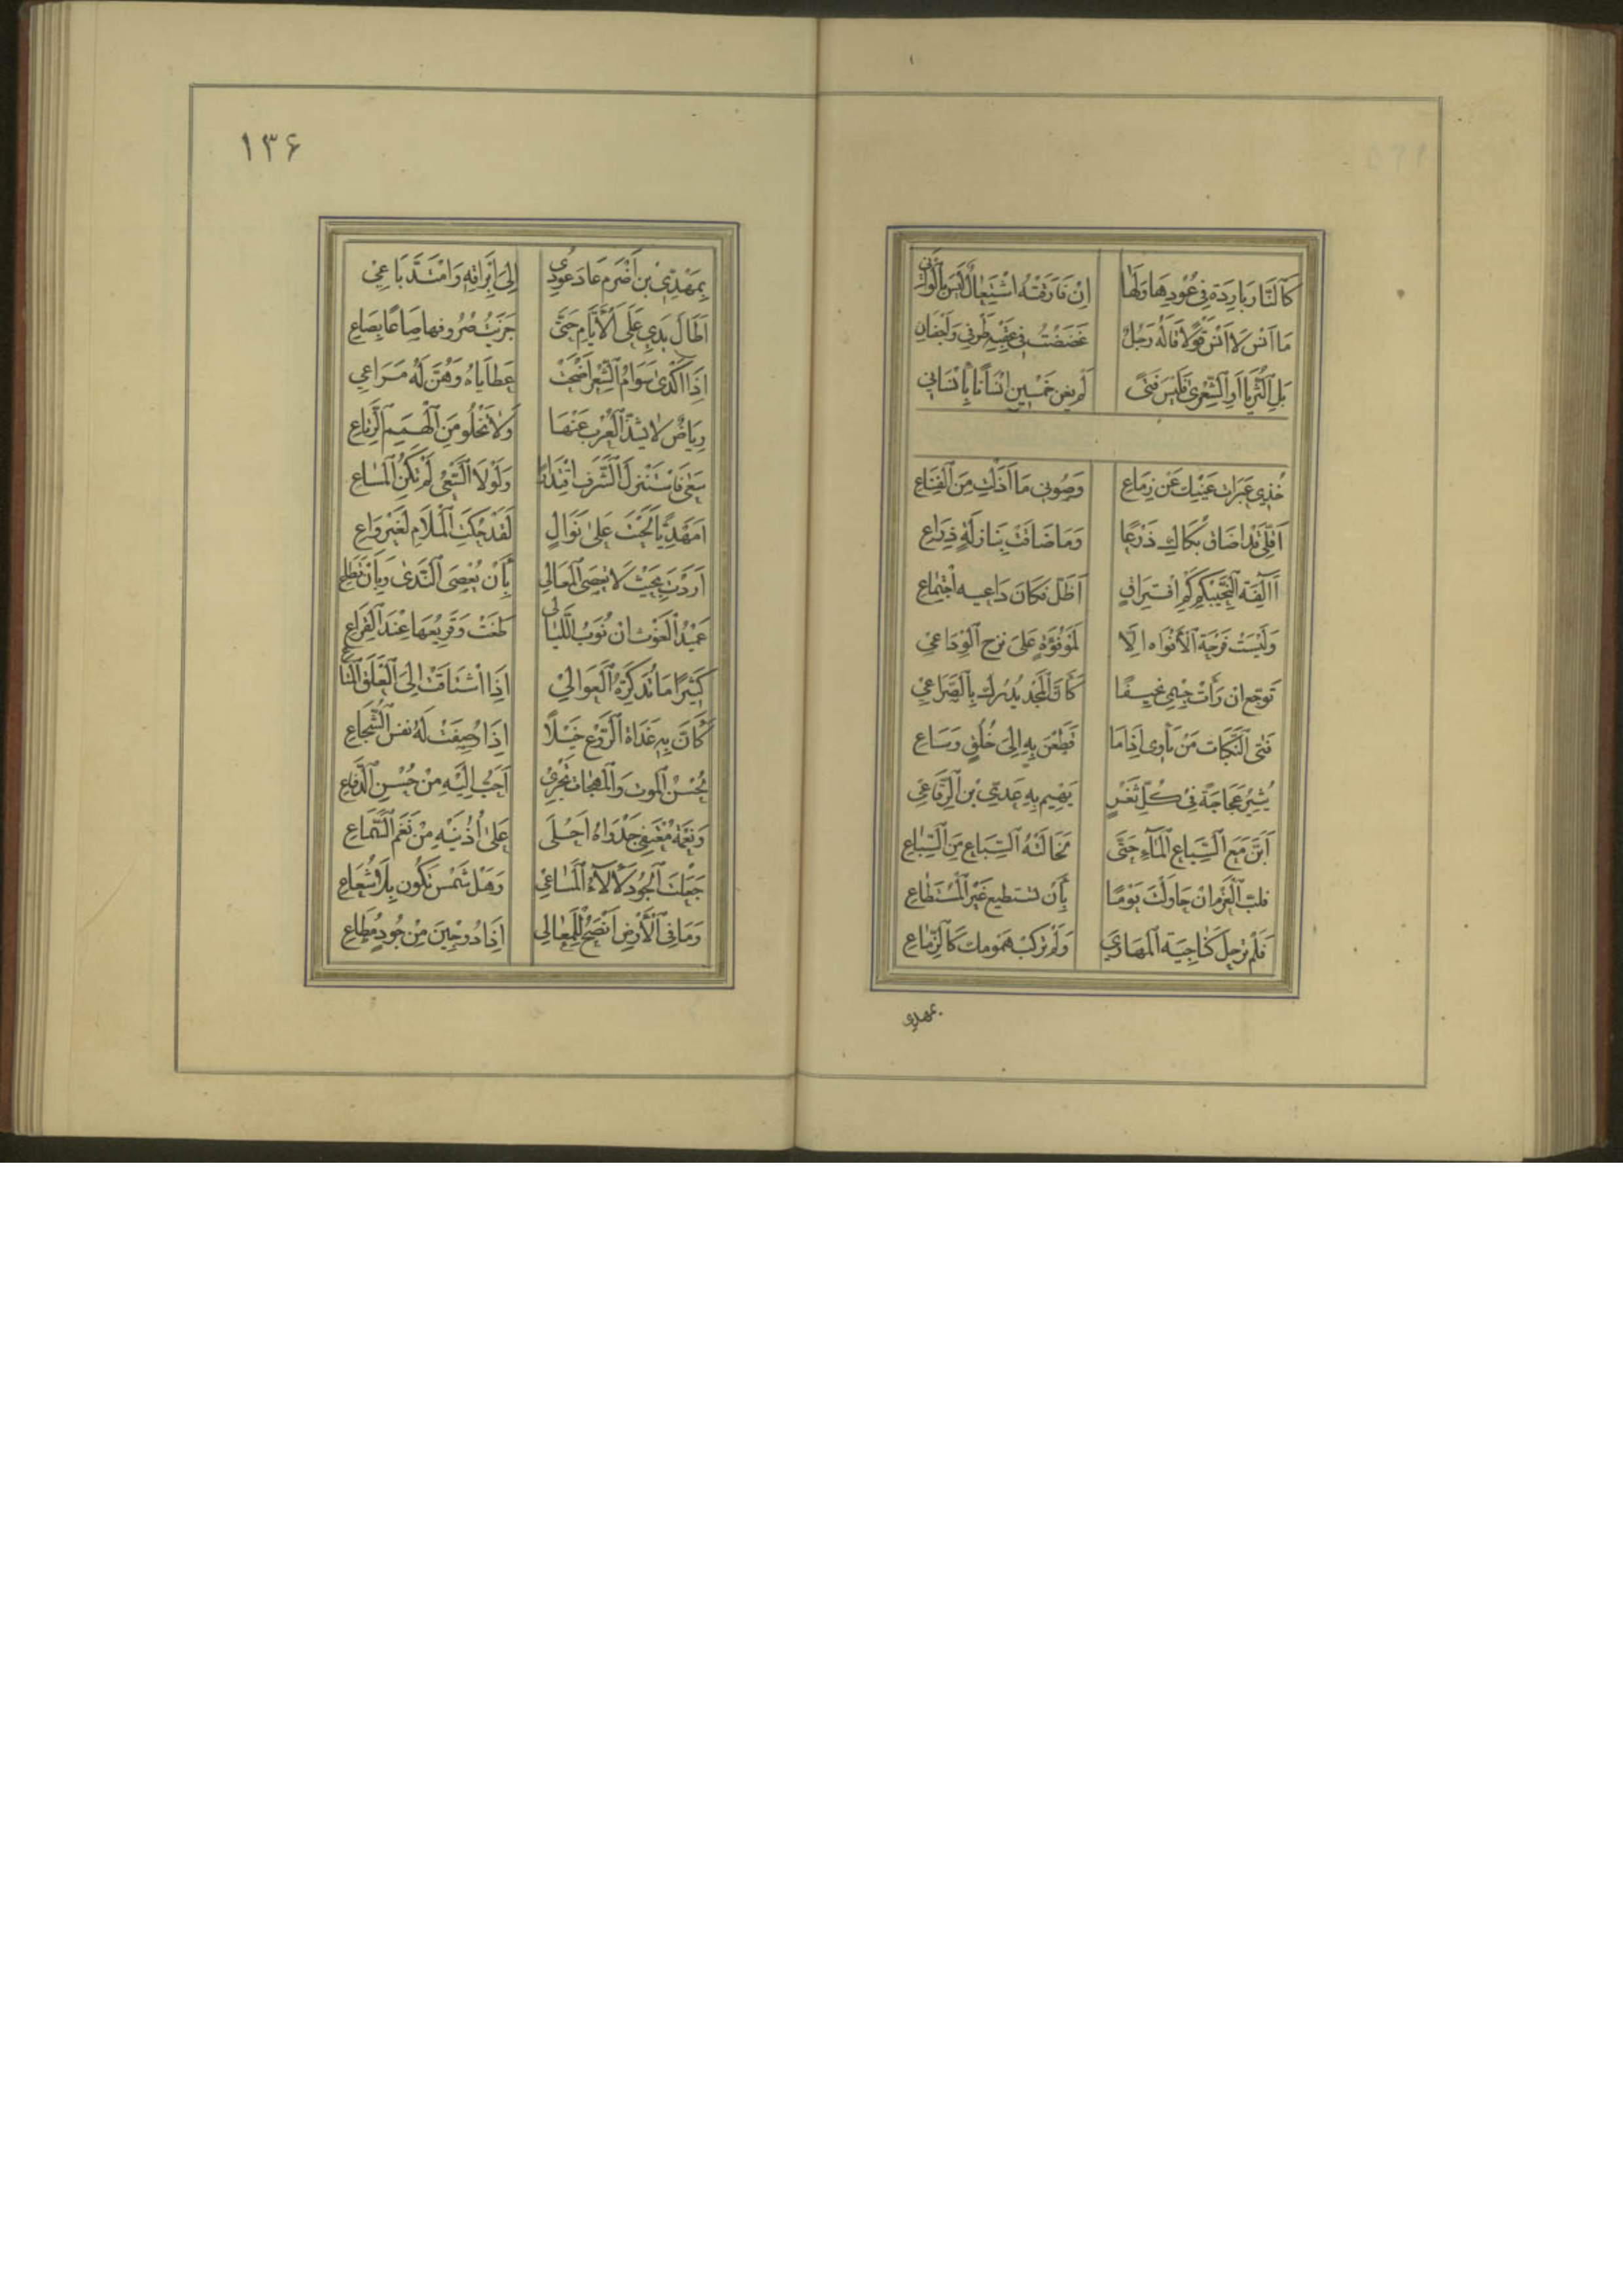 كَالنَّارِ بَارِدَة فِي عُوْدِهَا وَلَهَا اِنْ فَارَقَتْهُ اشْتِعَالٌ لَيْسَ بِالْوَانِي
مَا اَنْسَ لَا اَنْسَ قَوْلًا قَالَهُ رَجُلٌ غَضَضْتُ فِي عَقِبِهِ طَرْفِي وَاَجْفَانِ
بَلِ الثُّرَيَّا اَوِ الشِّعْرىٰ فَلَيْسَ فَتًى لَمْ يغن خَمْسِينَ اِنْسَانًا بِاِنْسَانِي
خُذِي عَبَرَاتِ عَيْنِيك عَنْ زِمَاعِ وَصُونِي مَا اَذَلْتِ مِنَ الْقِنَاعِ
اَقِلِّي قَد اَضَاقَ بُكَاكِ ذَرْعًا وَمَا ضَاقَتْ بِنَازِلَةٍ ذِرَاعِ
اَآلِفَة النَّحِيْبِ كَم كَمِ افْتِرَاقٍ اَظَلَّ فَكَانَ دَاعِيه اجْتِمَاعِ
وَلَيْسَتْ فَرْحَة الْأَوْبَاه اِلَّا لِمَوْقُوْفٍ عَلىَ تَرَحِ الْوِدَاعِي
تَوجّع ان رَأَتْ جِسْمِي نَحِيْفًا كَأَنَّ الْمَجْدَ يُدْرَك بِالصِّرَاعِي
فَتَى النَّكَبَات مَنْ يَأوِي اِذَا مَا قَطَعْنَ بِهِ اِلىَ خُلُقٍ وَسَاعِ
يُثِيرُ عَجَاجَةً فِي كُلِّ ثَغْرٍ يَهِيْم بِهِ عَدِيّ بْن الرِّقَاعِي
اَبَنَّ مَعَ السِّبَاعِ الْمَآءِ حَتَّى تَخَالَتْهُ السِّبَاع مِنَ السِّبَاعِ
فلبّ الْعَزْم اِنْ حَاوَلْتَ يَوْمًا بِأَنْ تستطيع غَيْرَ الْمُسْتَطَاعِ
فَلَمْ تَرْحل كَنَاجِيَة الْمَهَارِي وَلَمْ تَرْكَبْ هَمُومك كَالزِّمَاعِ
بمهدي
١٣٦
بِمَهْدِيّ بن اَصْرَمَ عَادَ عُودِي اِلىَ اِيْرَاقِهِ وَامْتَدَّ بَاعِي
اَطَالَ يَدِي عَلَى الْأَيَّامِ حَتَّى جَزَيْتُ صُرُوفهَا صَاعًا بِصَاعِ
اِذَا اَكْدىٰ سَوَامُ الشِّعْرِ اَضْحَتْ عَطَايَاهُ وَهُنَّ لَهُ مَرَاعِي
رِيَاضٌ لَا يَشذُّ الْعُرْب عَنْهَا وَلَا تَخْلُو مِنَ الْهِمَمِ الرِّتَاعِ
سَعىٰ فَاسْتَنْزَلَ الشَّرَف اقْتِدَارًا وَلَوْلَا السَّعْيُ لَمْ تَكُنِ الْمَسَاعِ
اَمَهْدِيًّا لَحَيْتَ عَلىٰ نَوَالٍ لَقَدْ حَكَتِ الْمَلَام لِغَيْرِ وَاعِ
اَرَدْتَ بِحَيْثُ لَا تعْصَى الْمَعَالِي بِأَنْ يُعْصَى النَّدىٰ وَبِأَنْ تُطَاعِ
عَمِيْدُ الْغَوْث اِنْ نُوَبُ اللَّيَالِي طَغَتْ وَقَرِيْعُهَا عِنْدَ الْقِرَاعِ
كَثِيْرًا مَا تُذَكِّرُهُ الْعَوَالِي اِذَا اشْتَاقَتْ اِلىَ الْعَلَقِ الْمُتَاعِ
كَأَنَّ بِهِ غَدَاة الرَّوْعِ خَبْلًا اِذَا وُصِفَتْ لَهُ نَفْس الشُّجَاعِ
لِحُسْنِ الْمَوْت وَالْمُهَجَات تَجْرِي اَحَبُّ اِلَيْهِ مِنْ حُسْنِ الدِّفَاعِ
وَنَغْمَة مُعْتَفِي جَدْوَاهُ اَحْلَى عَلىٰ اُذُنَيْهِ مِنْ نَغَمِ السَّمَاعِ
جَعَلْتَ الْجُودَ لَأْلَآءَ الْمَسَاعِي وَهَلْ شَمْسٌ تَكُون بِلَا شُعَاعِ
وَمَا فِى الْأَرْضِ اَنْصَحُ لِلْمَعَالِي اِذَا دُوْجِيْنَ مِنْ جُودٍ مُطَاعِ